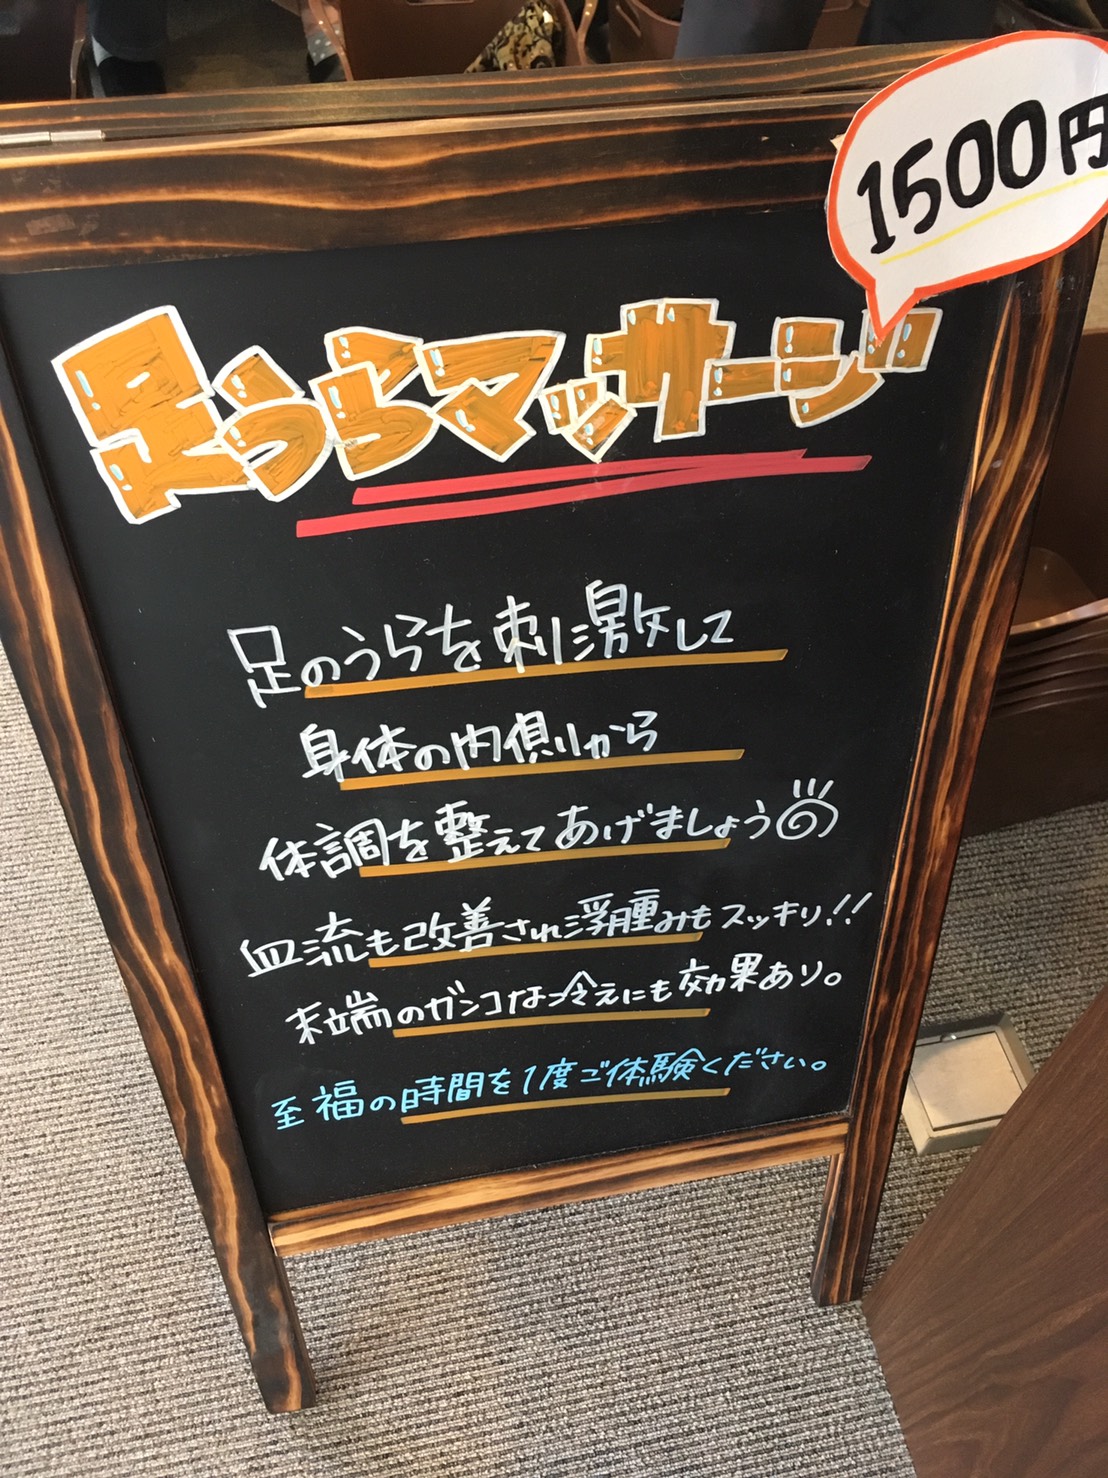 1500円
足うらマッサージ
足のうらを刺激して
身体の内側から
体調を整えてあげましょう
血流も改善され浮腫みもスッキリ!!
末端のガンコな冷えにも効果あり。
至福の時間を1度ご体験ください。